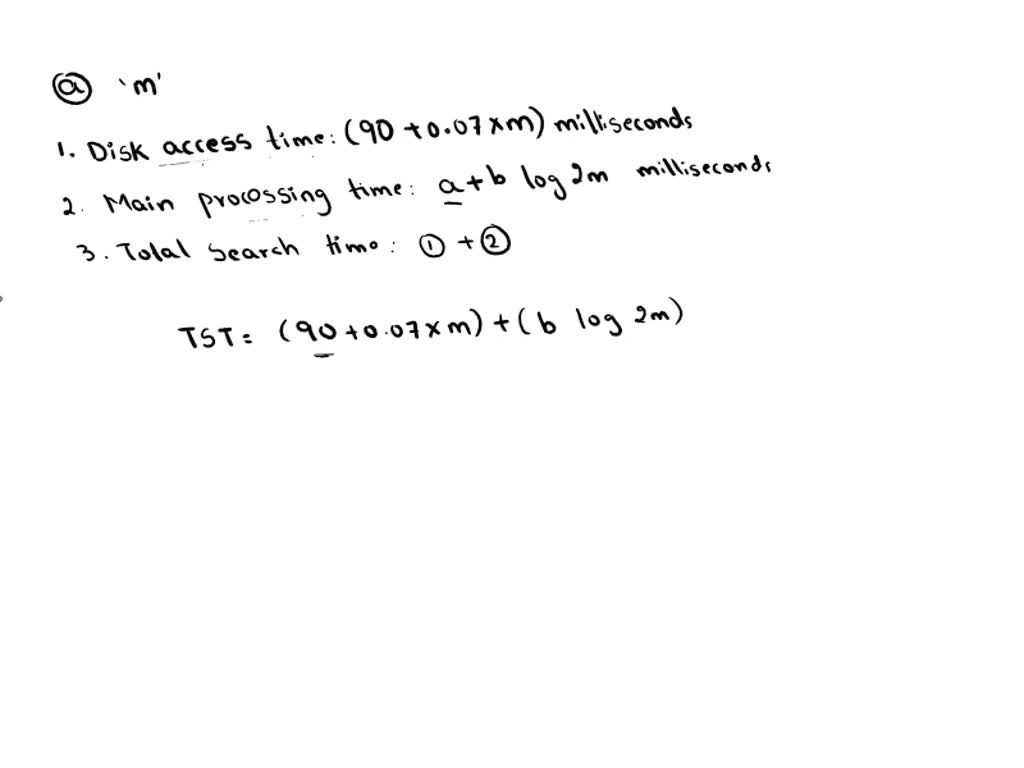 ⓐ 'm'
1. Disk access time: (90 + 0.07 × m) milliseconds
2. Main procossing time: a + b log 2m milliseconds
3. Total search time: ① + ②
TST = (90 + 0.07 × m) + (b log 2m)